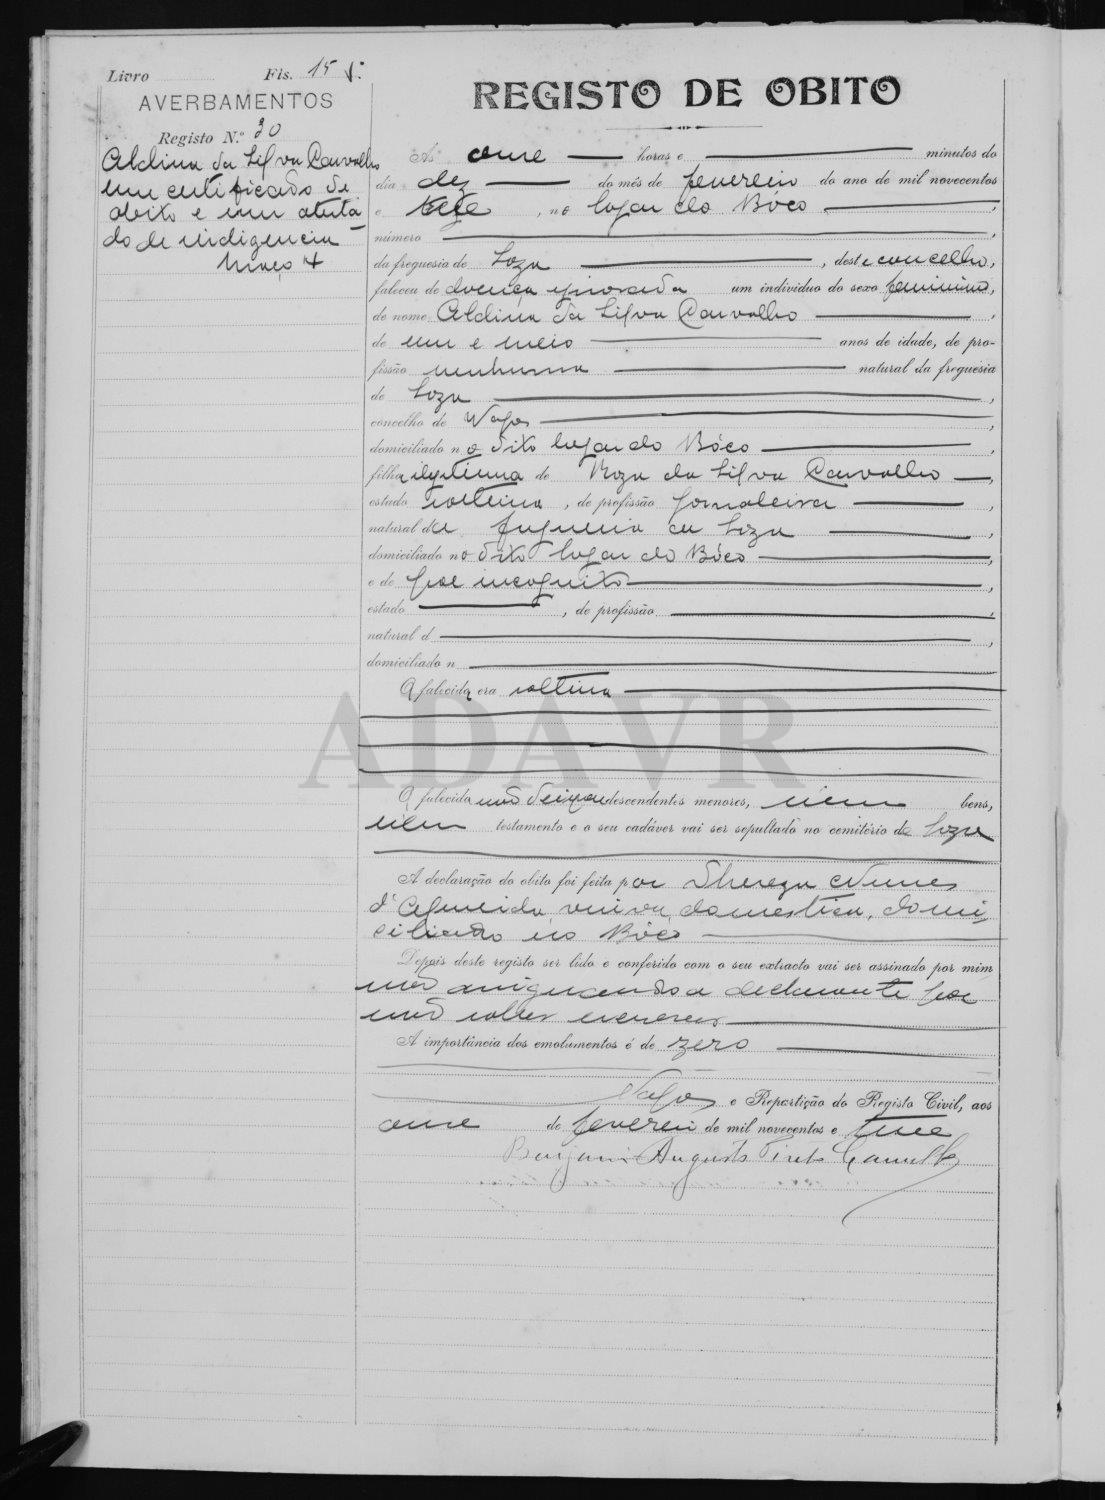 Livro Fls. 15 v.
AVERBAMENTOS
Registo N.º 30
Aldina da Silva Carvalho
um certificado de
obito e um atesta
do de indigencia
Maço 4
REGISTO DE OBITO
Às onze horas e minutos do
dia dez do mês de fevereiro do ano de mil novecentos
e treze, no logar do Bóco,
número,
da freguesia de Soza, deste concelho,
faleceu de doença ignorada um individuo do sexo feminino,
de nome Aldina da Silva Carvalho,
de um e meio anos de idade, de pro-
fissão nenhuma natural da freguesia
de Soza,
concelho de Vagos,
domiciliado no dito logar do Bóco,
filha ilegitima de Roza da Silva Carvalho,
estado solteira, de profissão jornaleira,
natural da freguesia de Soza,
domiciliado no dito logar do Bóco,
e de pae incognito,
estado, de profissão,
natural d,
domiciliado n
A falecida era solteira
ADAVR
A falecida não deixou descendentes menores, nem bens,
nem testamento e o seu cadáver vai ser sepultado no cemitério de Soza
A declaração do obito foi feita por Thereza Nunes
d'Almeida, viuva, domestica, domi
ciliada no Bóco
Depois deste registo ser lido e conferido com o seu extracto vai ser assinado por mim
não assignando a declarante por
não saber escrever
A importância dos emolumentos é de zero
Vagos e Repartição do Registo Civil, aos
onze de fevereiro de mil novecentos e treze
Benjamim Augusto Pinto Camello